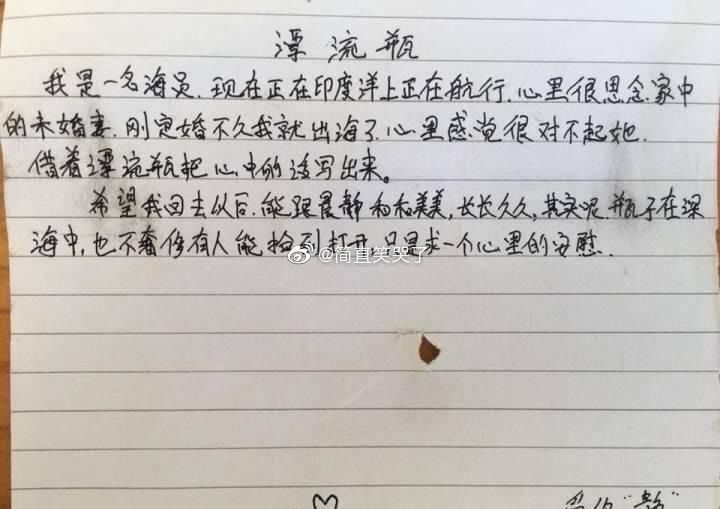 漂流瓶
我是一名海员.现在正在印度洋上正在航行.心里很思念家中
的未婚妻.刚定婚不久我就出海了.心里感觉很对不起她.
借着漂流瓶把心中的话写出来。
希望我回去以后,能跟晨静和和美美,长长久久,其实呢,瓶子在深
海中,也不奢侈有人能捡到打开,只是求一个心里的安慰.
@简直笑哭了
"静"